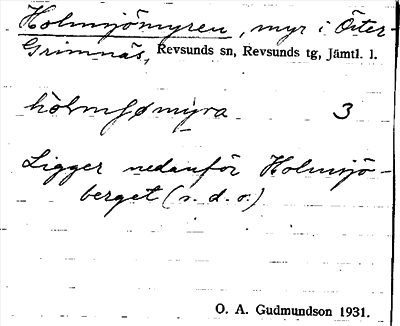 Holmsjömyren, myr i Öster-
Grimnäs, Revsunds sn, Revsunds tg, Jämtl. l.
hòlmʃømyra 3
Ligger nedanför Holmsjö-
berget (s. d. o.)
O. A. Gudmundson 1931.